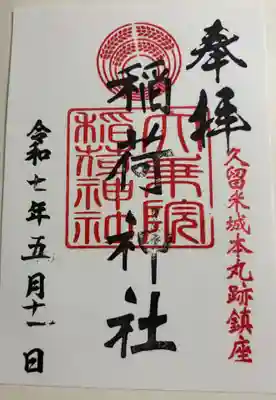 奉拝
久留米城本丸跡鎮座
稲荷神社
大乗院
稲荷神社
令和七年五月十一日